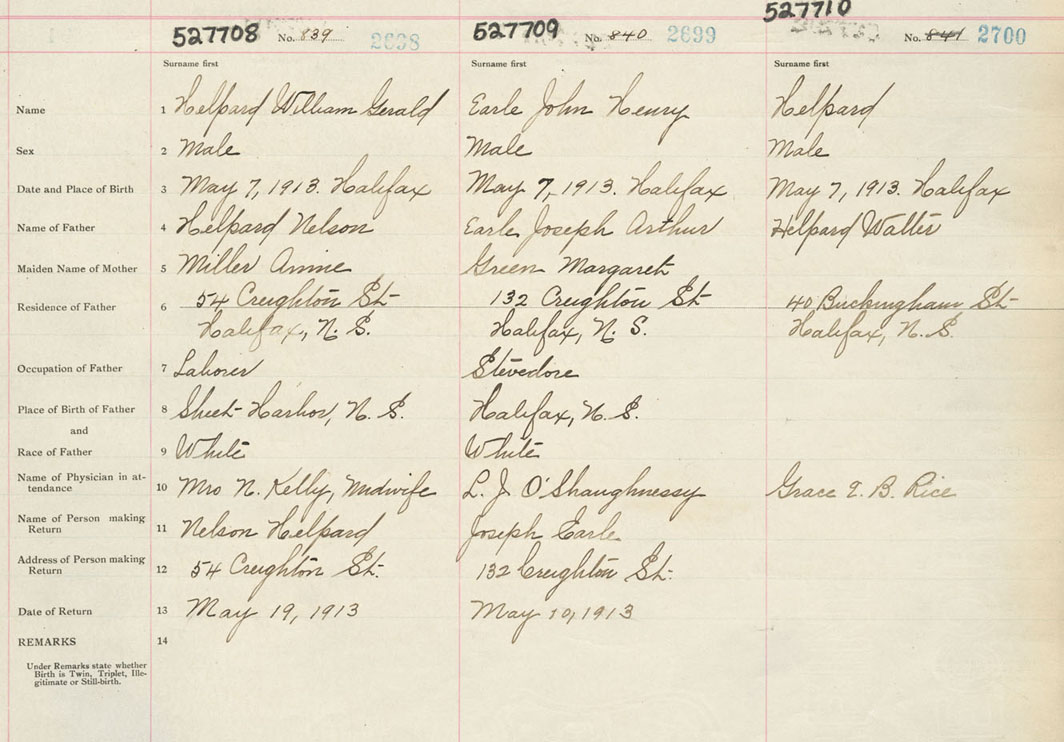 527708 No. 839 2698 527709 No. 840 2699 527710 No. 841 2700
Surname first Surname first Surname first
Name 1 Helpard William Gerald Earle John Henry Helpard
Sex 2 Male Male Male
Date and Place of Birth 3 May 7, 1913. Halifax May 7, 1913. Halifax May 7, 1913. Halifax
Name of Father 4 Helpard Nelson Earle Joseph Arthur Helpard Walter
Maiden Name of Mother 5 Miller Annie Green Margaret
Residence of Father 6 54 Creighton St- 132 Creighton St- 40 Buckingham St-
Halifax, N.S. Halifax, N.S. Halifax, N.S.
Occupation of Father 7 Laborer Stevedore
Place of Birth of Father 8 Sheet- Harbor, N.S. Halifax, N.S.
and
Race of Father 9 White White
Name of Physician in at-
tendance 10 Mrs N. Kelly, Midwife L. J. O'Shaughnessy Grace E. B. Rice
Name of Person making
Return 11 Nelson Helpard Joseph Earle
Address of Person making
Return 12 54 Creighton St. 132 Creighton St.
Date of Return 13 May 19, 1913 May 10, 1913
REMARKS 14
Under Remarks state whether
Birth is Twin, Triplet, Ille-
gitimate or Still-birth.